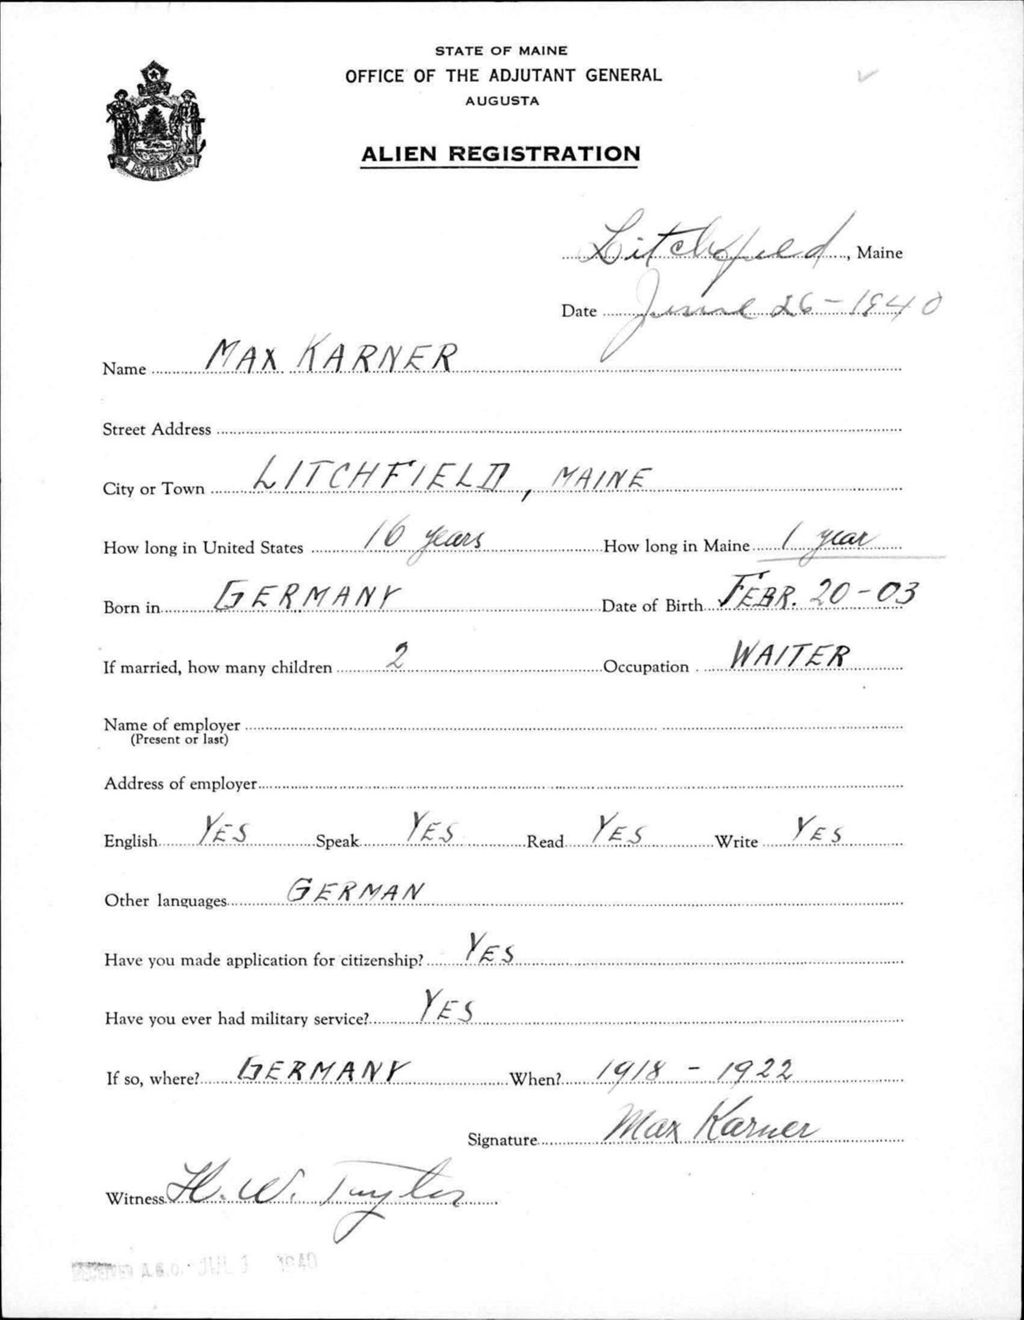 STATE OF MAINE
OFFICE OF THE ADJUTANT GENERAL
AUGUSTA
ALIEN REGISTRATION
MAINE
Litchfield, Maine
Date June 26-1940
Name MAX KARNER
Street Address
City or Town LITCHFIELD, MAINE
How long in United States 16 years How long in Maine 1 year
Born in GERMANY Date of Birth FEBR. 20-03
If married, how many children 2 Occupation WAITER
Name of employer
(Present or last)
Address of employer
English YES Speak YES Read YES Write YES
Other languages GERMAN
Have you made application for citizenship? YES
Have you ever had military service? YES
If so, where? GERMANY When? 1918 - 1922
Signature Max Karner
Witness H. W. Taylor
RECEIVED A.G.O. JUL 1940